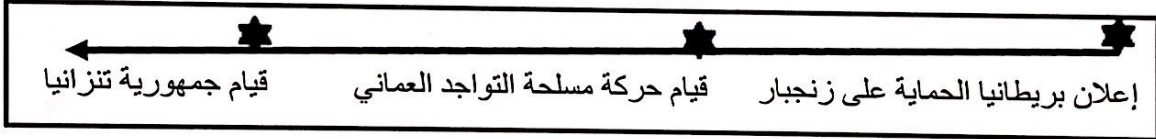 إعلان بريطانيا الحماية على زنجبار
قيام حركة مسلحة التواجد العماني
قيام جمهورية تنزانيا